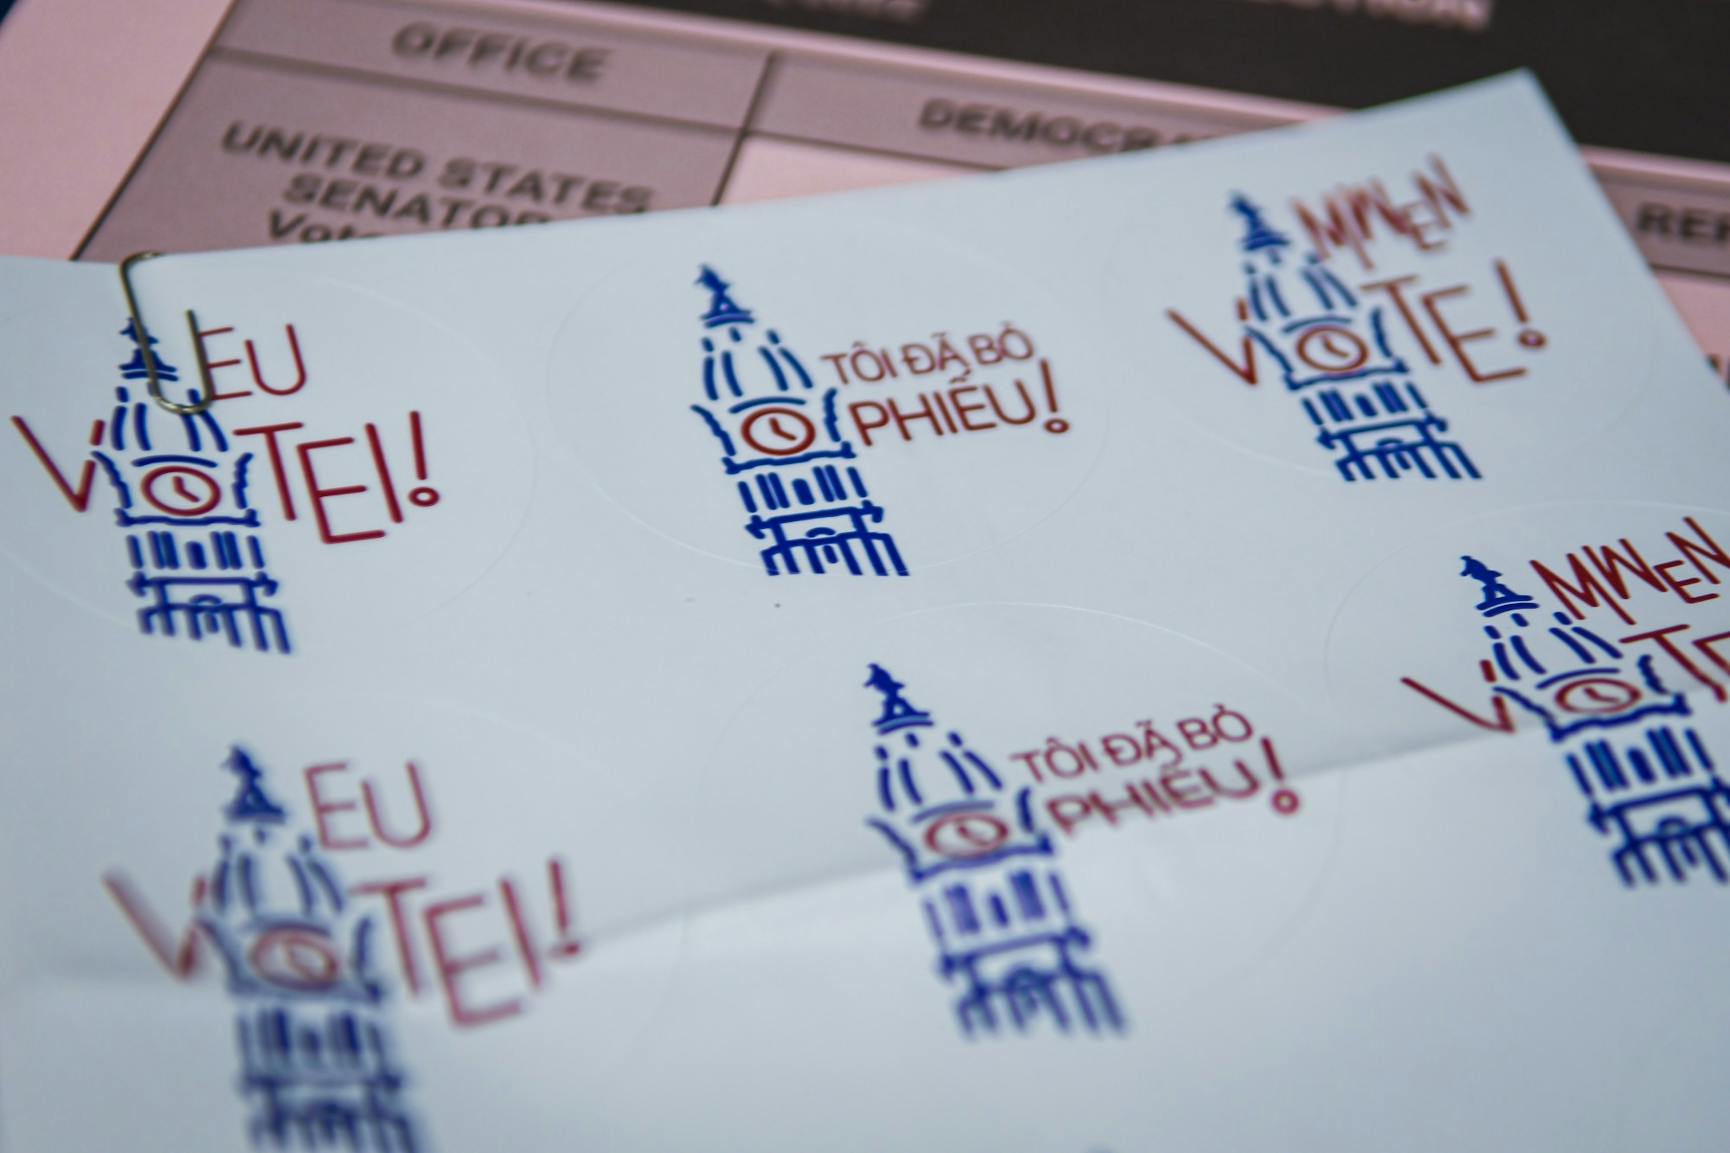 OFFICE
UNITED STATES
SENATOR
DEMOCRA
EU
VOTEI!
TÔI ĐÃ BỎ
PHIẾU!
MWEN
VOTE!
EU
VOTEI!
TÔI ĐÃ BỎ
PHIẾU!
MWEN
VOTE